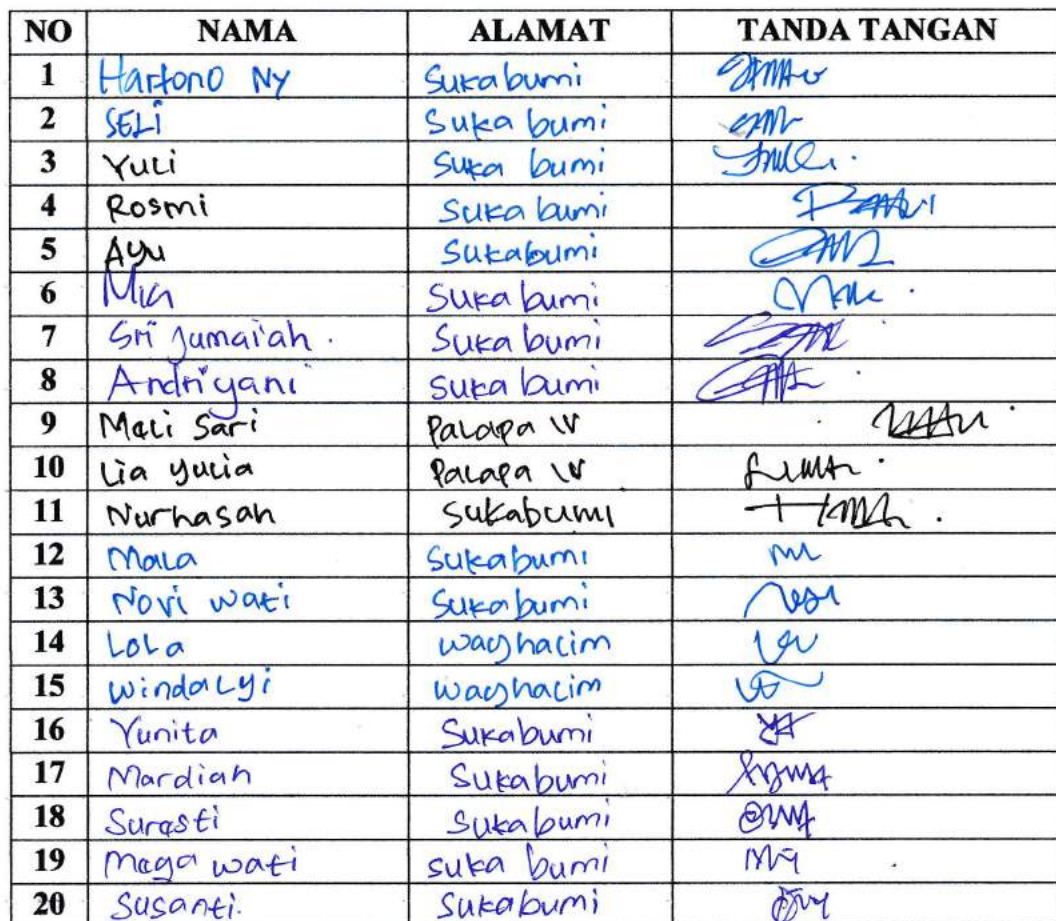 NO NAMA ALAMAT TANDA TANGAN
1 Hartono Ny Sukabumi
2 SELI Suka bumi
3 Yuli Suka bumi
4 Rosmi Suka bumi
5 Ayu Sukabumi
6 Mia Suka bumi
7 Sri Jumai'ah. Suka bumi
8 Andriyani Suka bumi
9 Meli Sari Palapa IV
10 Lia yulia Palapa IV
11 Nurhasah Sukabumi
12 Mala Sukabumi
13 Novi wati Sukabumi
14 Lola wayhalim
15 Winda Lyi wayhalim
16 Yunita Sukabumi
17 Mardiah Sukabumi
18 Surasti Sukabumi
19 Mega wati suka bumi
20 Susanti. Sukabumi